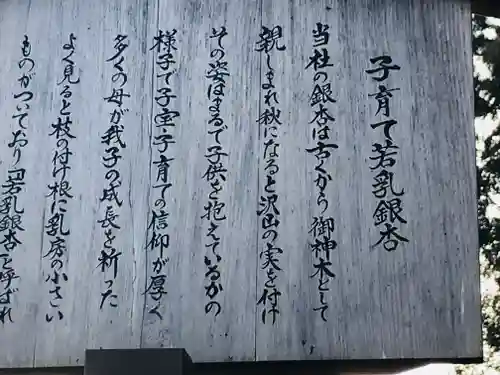 子育て若乳銀杏
当社の銀杏は古くから御神木として
親しまれ秋になると沢山の実を付け
その姿はまるで子供を抱えているかの
様子で子宝子育ての信仰が厚く
多くの母が我子の成長を祈った
よく見ると枝の付け根に乳房の小さい
ものがついており「若乳銀杏」と呼ばれ